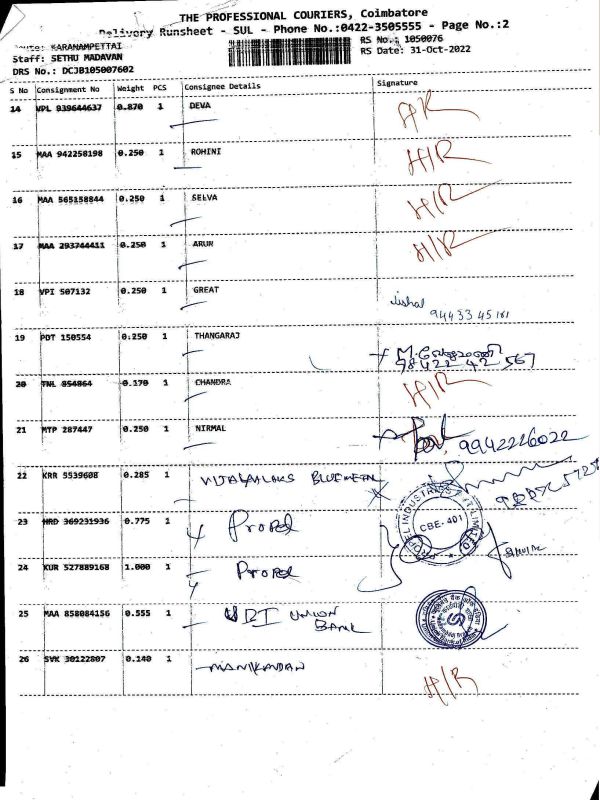 THE PROFESSIONAL COURIERS, Coimbatore
Delivery Runsheet - SUL - Phone No.:0422-3505555 - Page No.:2
KARANAMPETTAI
RS No.: 1050076
Staff: SETHU MADAVAN
RS Date: 31-Oct-2022
DRS No.: DCJB105007602
S No Consignment No Weight PCS Consignee Details Signature
14 VPL 839644637 0.870 1 DEVA
15 MAA 942258198 0.250 1 ROHINI H/R
16 MAA 565158844 0.250 1 SELVA H/R
17 MAA 293744411 0.250 1 ARUR H/R
18 VPI 507132 0.250 1 GREAT
94433 45161
19 PDT 150554 0.250 1 THANGARAJ
98422 42 567
20 TNL 854864 0.170 1 CHANDRA H/R
21 MTP 287447 0.250 1 NIRMAL 9942226022
22 KRR 5539608 0.285 1
23 HRD 369231936 0.775 1 Propel
24 KUR 527889168 1.000 1 Propel
CBE-401
25 MAA 858084156 0.555 1 UBI UNION
BANK
26 SVK 30122807 0.140 1 MANIKANDAN H/R